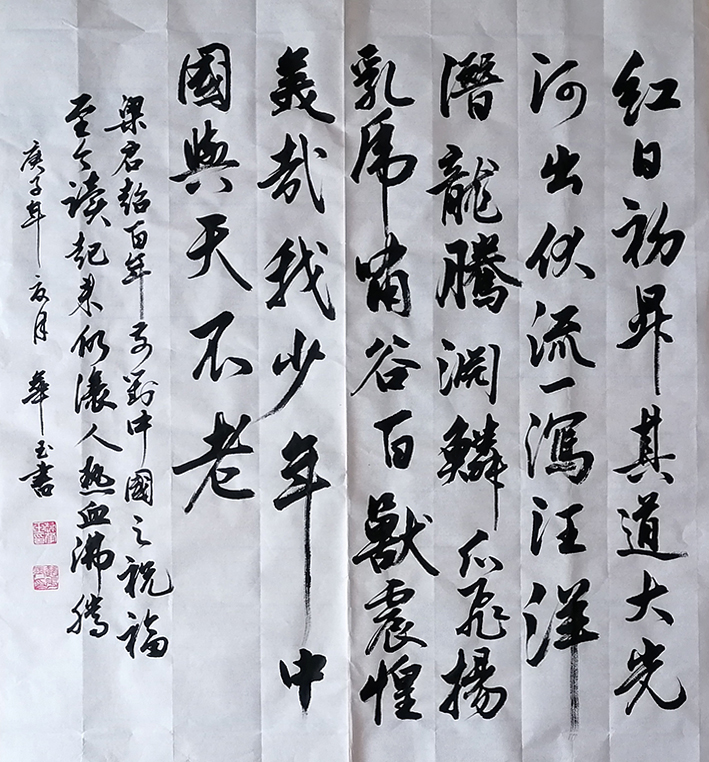 紅日初昇其道大光
河出伏流一瀉汪洋
潛龍騰淵鱗爪飛揚
乳虎嘯谷百獸震惶
美哉我少年中
國與天不老
梁君超百年前對中國之祝福
至今讀起來仍讓人熱血沸騰
庚子年夏月 華玉書